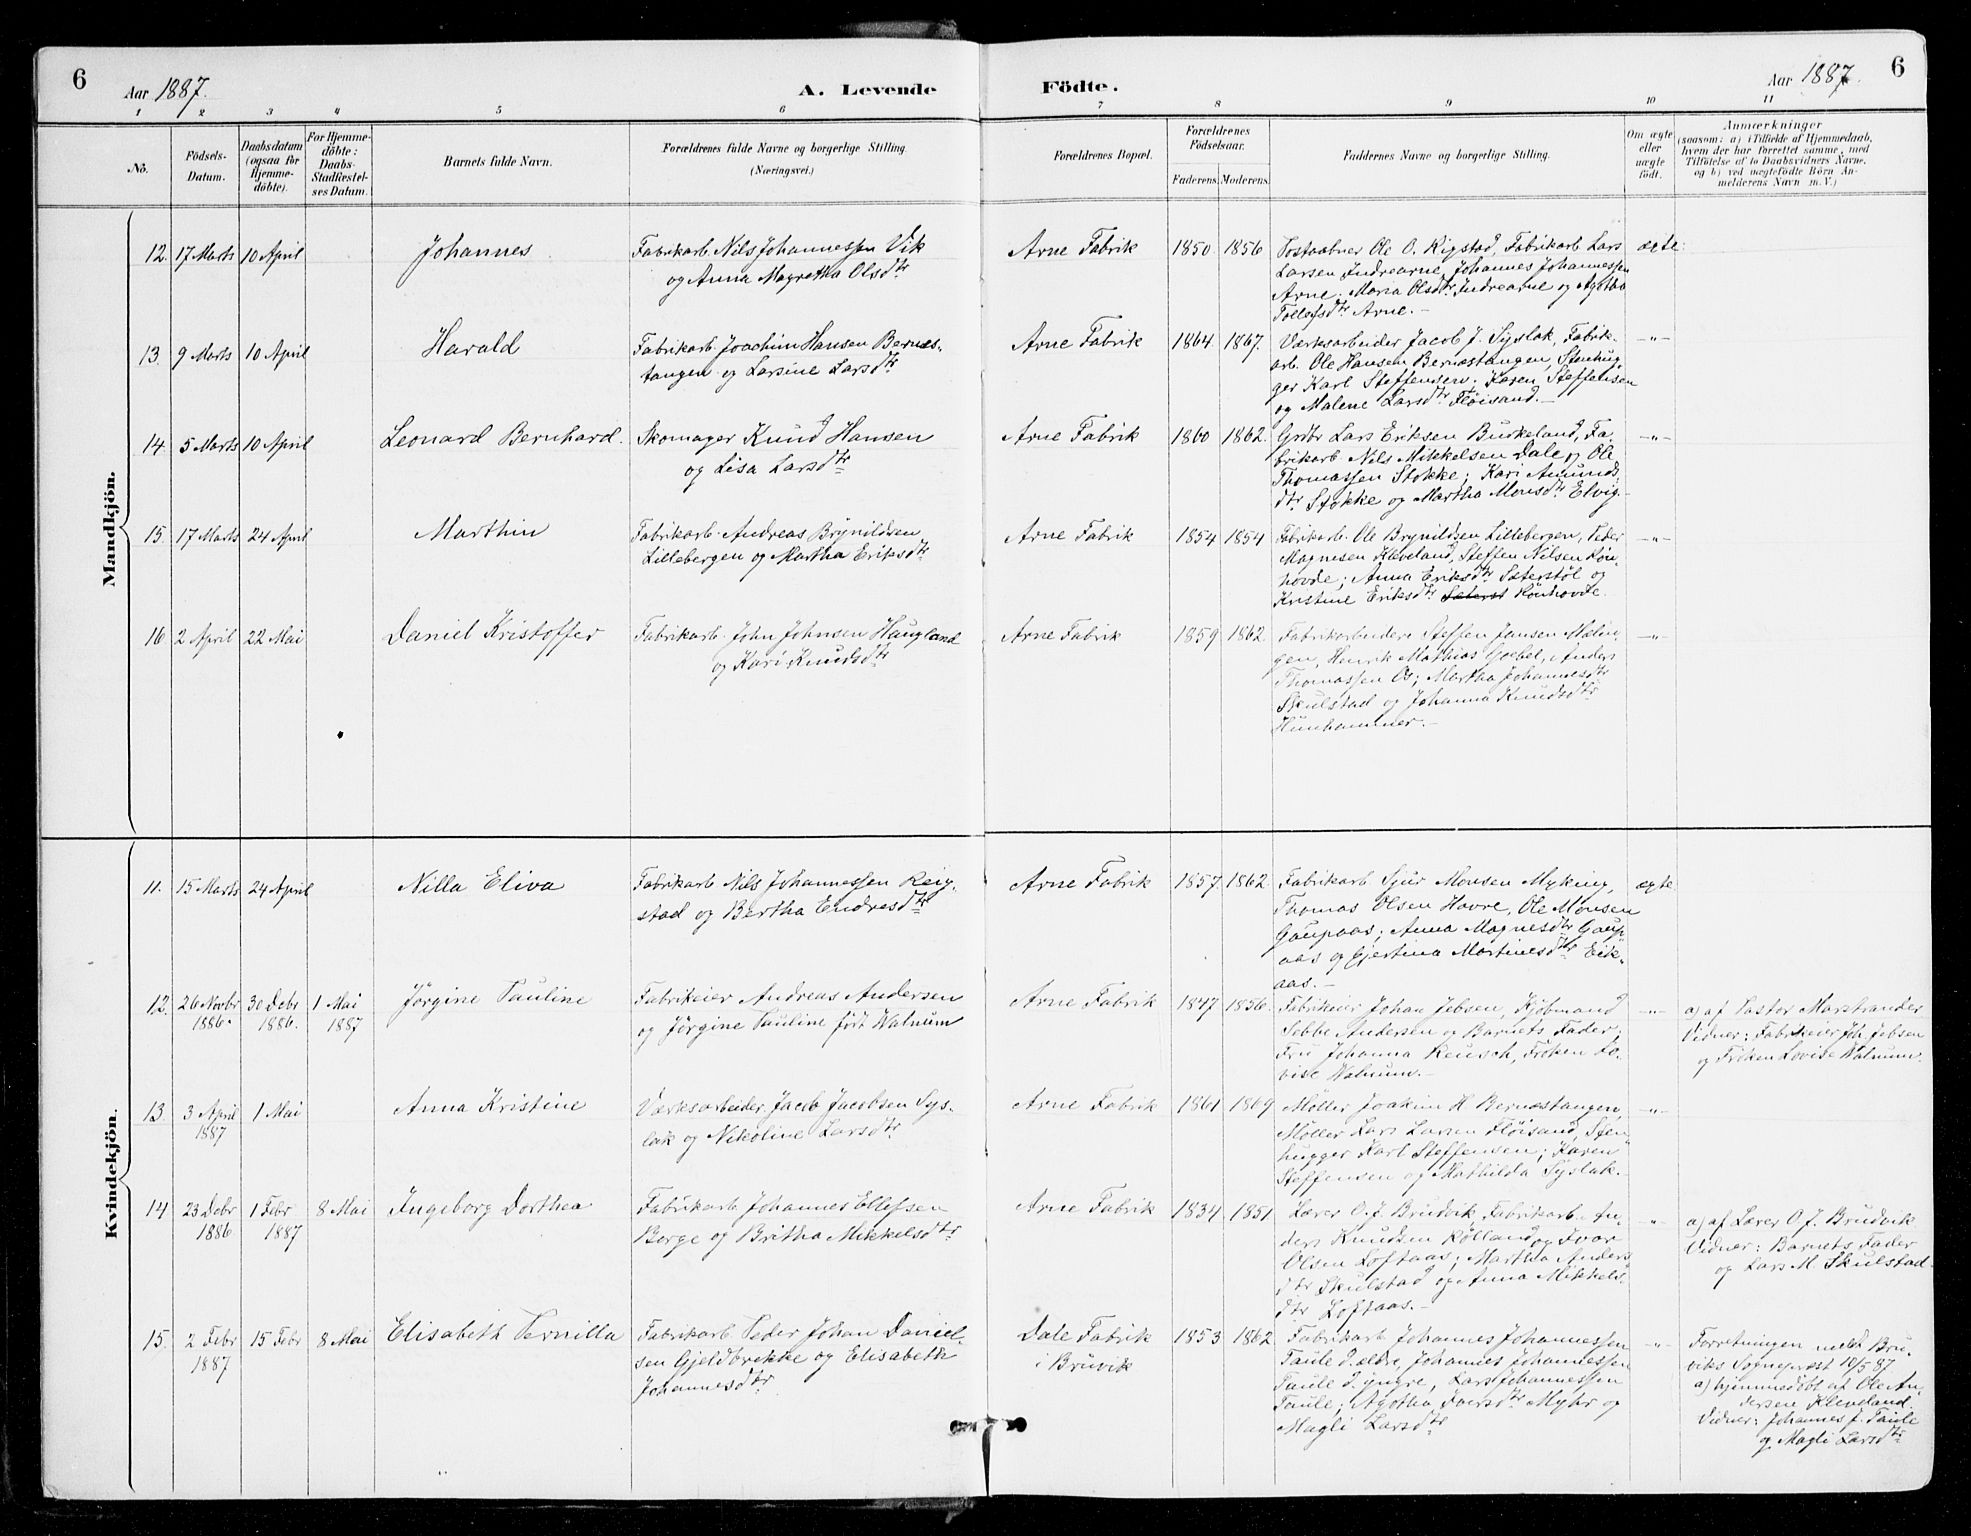 6
Aar 1887.
A. Levende
Födte.
Aar 1887.
6
1 2 3 4 5 6 7 8 9 10 11
No.
Födsels-
Datum.
Daabsdatum
(ogsaa før
Hjemme-
döbte).
For Hjemme-
döbte:
Daabs-
Stadfæstel-
ses Datum.
Barnets fulde Navn.
Forældrenes fulde Navne og borgerlige Stilling.
(Næringsvei.)
Forældrenes Bopæl.
Forældrenes
Fødselsaar.
Faderens. Moderens.
Faddernes Navne og borgerlige Stilling.
Om ægte
eller
uægte
födt.
Anmærkninger
(saasom: a) i Tilfælde af Hjemmedaab,
hvem der har forrettet samme, med
Tilföielse af to Daabsvidners Navne.
og b) ved uægtefödte Börn An-
melderens Navn m. V.)
Mandkjön.
12. 17 Marts 10 April Johannes
Fabrikarb. Nils Johannessen Vik
og Anna Magretha Olsdtr
Arne Fabrik 1850 1856
Postaabner Ole O. Rigstad, Fabrikarb Lars
Larsen Indrearne, Johannes Johannessen
Arne. Maria Olsdtr. Indrearne og Agatha
Tollefsdtr Arne. -
ægte.
13. 9 Marts 10 April Harald
Fabrikarb. Joachim Hansen Bernæs-
tangen og Larsine Larsdtr
Arne Fabrik 1864 1867.
Værksarbeider Jacob J. Syslak, Fabrik-
arb. Ole Hansen Bernæstangen, Stenhug-
ger Karl Steffensen; Karen Steffensen
og Malene Larsdtr. Flöisand. -
-"-
14. 5 Marts 10 April Leonard Bernhard.
Skomager Knud Hansen
og Lisa Larsdtr
Arne Fabrik 1860 1862.
Grdbr Lars Eriksen Burkeland, Fa-
brikarb. Nils Mikkelsen Dale og Ole
Thomassen Stokke; Kari Amunds-
dtr. Stokke og Martha Monsdtr Elvig. -
-"-
15. 17 Marts 24 April Marthin
Fabrikarb. Andreas Brynildsen
Lillebergen og Martha Eriksdtr
Arne Fabrik 1854 1854
Fabrikarb. Ole Brynildsen Lillebergen, Peder
Magnesen Kleveland, Steffen Nilsen Rön-
hovde; Anna Eriksdtr Sæterstöl og
Kristine Eriksdtr Sæterst Rönhovde.
-"-
16 2 April 22 Mai Daniel Kristoffer
Fabrikarb. John Johnsen Haugland
og Kari Knudsdtr
Arne Fabrik 1859 1862.
Fabrikarbeidere Steffen Jansen Mælin-
gen, Henrik Mathias Goebel, Anders
Thomassen Os; Martha Johannesdtr
Skulstad og Johanna Knudsdtr
Hunhammer. -
-"-
Kvindekjön.
11. 15 Marts 24 April Nilla Eliva
Fabrikarb Nils Johannessen Reig-
stad og Bertha Endresdtr
Arne Fabrik 1857. 1862.
Fabrikarb Sjur Monsen Myking,
Thomas Olsen Havre, Ole Monsen
Gaupaas; Anna Magnesdtr Gaup-
aas og Gjertina Martinesdtr Eik-
aas. -
ægte
12. 26 Novbr
1886.
30 Debr
1886.
1 Mai
1887
Jörgine Pauline
Fabrikeier Andreas Andersen
og Jörgine Pauline födt Walnum
Arne Fabrik 1847 1856.
Fabrikeier Johan Jebsen, Kjöbmand
Sebbe Andersen og Barnets Fader;
Fru Johanna Reusch, Fröken Lo-
vise Walnum. -
-"-
a) af Pastor Marstrander
Vidner: Fabrikeier Joh. Jebsen
og Fröken Lovise Walnum.
13. 3 April
1887
1 Mai
Anna Kristine
Værksarbeider Jacob Jacobsen Sys-
lak og Nikoline Larsdtr.
Arne Fabrik 1861 1869
Möller Joakim H. Bernæstangen,
Möller Lars Larsen Flöisand, Sten-
hugger Karl Steffensen; Karen
Steffensen og Mathilda Syslak. -
-"-
14 23 Debr
1886
1 Febr
1887
8 Mai
Ingeborg Dorthea
Fabrikarb. Johannes Ellefsen
Borge og Britha Mikkelsdtr
Arne Fabrik 1834 1851.
Lærer O. J. Brudvik, Fabrikarb. An-
ders Knudsen Rölland og Ivar
Olsen Loftaas; Martha Anders-
dtr Skulstad og Anna Mikkels-
dtr Loftaas. -
-"-
a) af Lærer O. J. Brudvik
Vidner: Barnets Fader
og Lars M. Skulstad.
15. 2 Febr
1887
15 Febr 8 Mai Elisabeth Pernilla
Fabrikarb Peder Johan Daniel-
sen Gjeldbrekke og Elisabeth
Johannesdtr.
Dale Fabrik
i Bruvik
1853 1862
Fabrikarb Johannes Johannessen
Taule d. ældre, Johannes Johannessen
Taule d. yngre, Lars Johannessen
Taule; Agatha Iversdtr Myhr og
Magli Larsdtr
-"-
Forretningen meldt Bru-
viks Sognepræst 10/5 87
a) hjemmedöbt af Ole An-
dersen Kleveland.
Vidner: Johannes J. Taule
og Magli Larsdtr